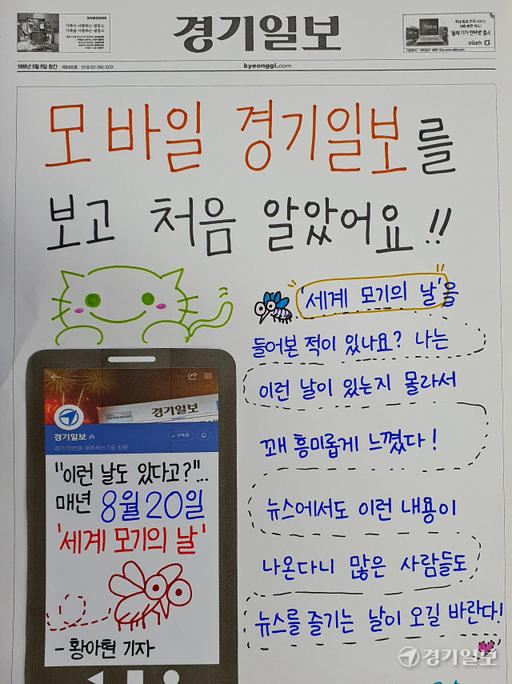 SAMSUNG
경기일보
olleh
1988년 8월 8일 창간
kyeonggi.com
모바일 경기일보를
보고 처음 알았어요!!
'세계 모기의 날'을
들어본 적이 있나요? 나는
이런 날이 있는지 몰라서
꽤 흥미롭게 느꼈다!
뉴스에서도 이런 내용이
나온다니 많은 사람들도
뉴스를 즐기는 날이 오길 바란다!
경기일보
경기일보
구독중
경기·인천을 대표하는 1등 신문
"이런 날도 있다고?"...
매년 8월 20일
'세계 모기의 날'
- 황아현 기자
경기일보